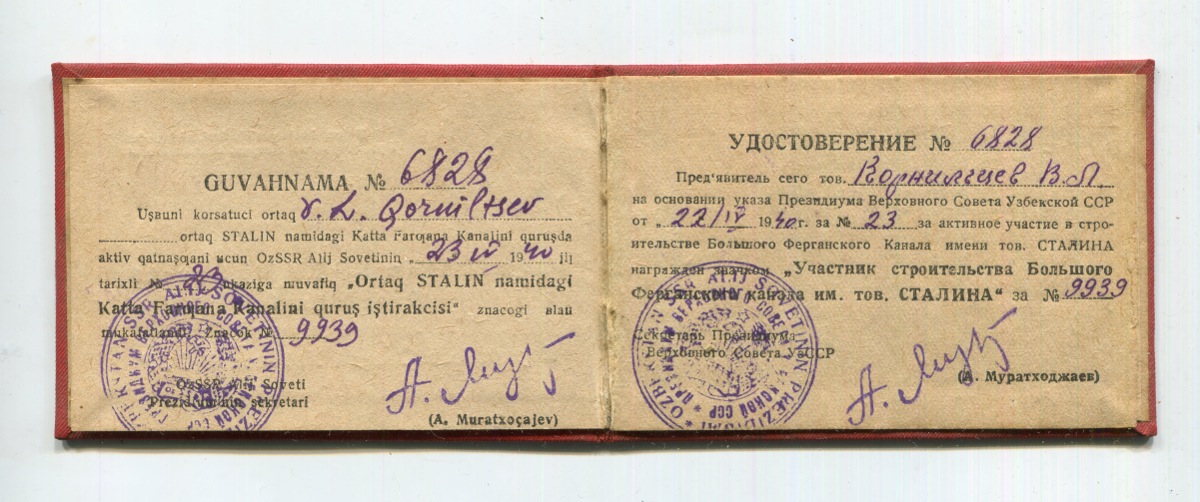 GUVAHNAMA № 6828
Uşвuni korsatuci ortaq V. L. Qorniltsev
ortaq STALIN namidagi Katta Farƣana Kanalini quruşda
aktiv qatnaşqani ucun OzSSR Alij Sovetinin „23 IV 1940 jli
tarixli № 23 ukaziga muvafiq „Ortaq STALIN namidagi
Katta Farƣana Kanalini quruş iştirakcisi" znacogi вilan
mukafatlandi. Znacok № 9939
OzSSR Alij Soveti
Prezidiuminin sekretari
(A. Muratxoçajev)
УДОСТОВЕРЕНИЕ № 6828
Пред'явитель сего тов. Корнильцев В.Л.
на основании указа Президиума Верховного Совета Узбекской ССР
от „22/IV 1940г. за № 23 за активное участие в стро-
ительстве Большого Ферганского Канала имени тов. СТАЛИНА
награжден значком „Участник строительства Большого
Ферганского канала им. тов. СТАЛИНА" за № 9939
Секретарь Президиума
Верховного Совета УзССР
(А. Муратходжаев)